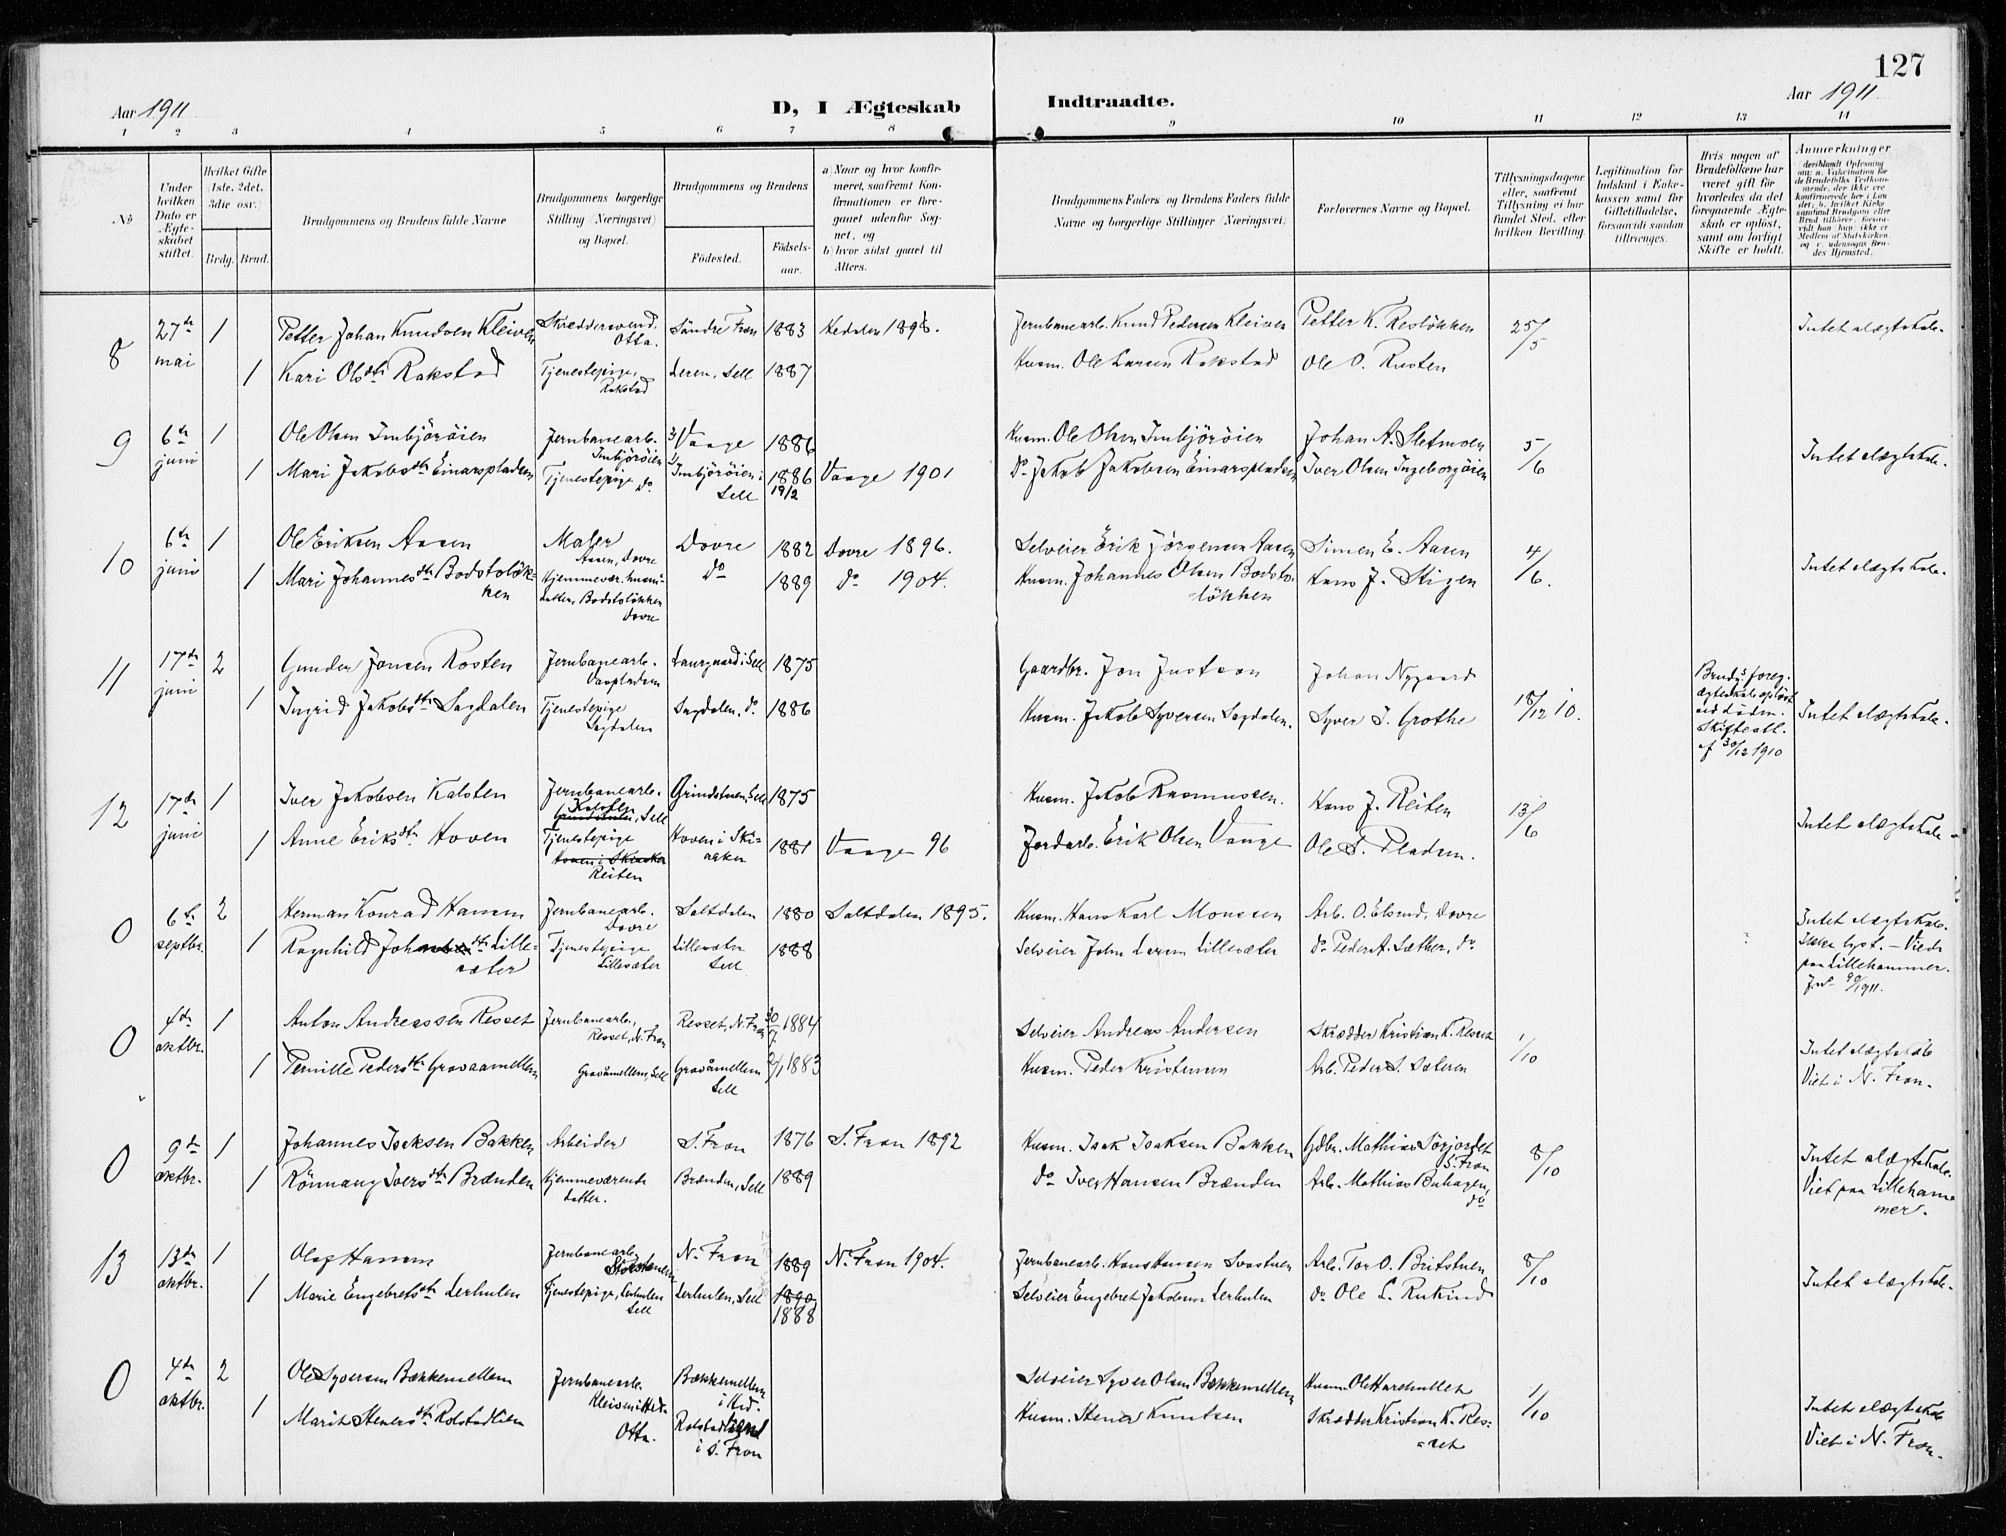 127
Aar 1911
D, I Ægteskab Indtraadte.
Aar 1911
1 2 3 4 5 6 7 8 9 10 11 12 13 14
№
Under hvilken Dato er Ægteskabet stiftet.
Hvilket Gifte (1ste, 2det, 3die osv.)
Brdg. Brud.
Brudgommens og Brudens fulde Navne
Brudgommens borgerlige Stilling (Næringsvei) og Bopæl.
Brudgommens og Brudens
Fødested.
Fødselsaar.
a) Naar og hvor konfirmeret, saafremt Konfirmationen er foregaaet udenfor Sognet, og
b) hvor sidst gaaet til Alters.
Brudgommens Faders og Brudens Faders fulde Navne og borgerlige Stillinger (Næringsvei)
Forlovernes Navne og Bopæl.
Tillysningsdagene eller, saafremt Tillysning ei har fundet Sted, efter hvilken Bevilling.
Legitimation for Indskud i Enkekassen samt for Giftetilladelse, forsaavidt saadan tiltrænges.
Hvis nogen af Brudefolkene har været gift før hvorledes da det foregaaende Ægteskab er opløst, samt om lovligt Skifte er holdt.
Anmærkninger
8 27de mai 1 Petter Johan Knudsen Kleiven Skræddersvend, Otta. Söndre Fron 1883 Hedalen 1898. Jernbanearb. Knud Pedersen Kleiven Petter K. Reslökken 25/5 Intet slægtskab.
1 Kari Olsdtr Rakstad Tjenestepige, Rakstad Leren, Sell 1887 Husm. Ole Larsen Rakstad Ole O. Rusten
9 6te juni 1 Ole Olsen Imbjöröien Jernbanearb. Imbjöröien Vaage 1886 Husm. Ole Olsen Imbjöröien Johan A. Sletmoen 5/6 Intet slægtskab.
1 Mari Jakobsdtr Einarspladsen Tjenestepige do. Imbjöröien i Sell 1886 19/2 Vaage 1901 Do Jakob Jakobsen Einarspladsen Iver Olsen Ingeborgöien
10 6te juni 1 Ole Eriksen Aasen Maler Aasen, Dovre Dovre 1882 Dovre 1896. Selveier Erik Jörgensen Aasen Simen E. Aasen 4/6. Intet slægtskab.
1 Mari Johannesdtr Bodstolökken Hjemmevær. husm.datter, Bodstolökken Dovre Do 1889 Do 1904. Husm. Johannes Olsen Bodstolökken Hans J. Stigen
11 17de juni 2 Gunder Jonsen Rosten Jernbanearb. Laurgaard i Sell 1875 Gaardbr. Jon Justson Johan Nygaard 18/12 10. Brudg.s foreg. ægteskab oplöst ved döden. Skifteatt. af 30/12 1910 Intet slægtskab.
1 Ingrid Jakobsdtr Sagdalen Tjenestepige Sagdalen Sagdalen, do. 1886 Husm. Jakob Syversen Sagdalen. Syver J. Grothe
12 17de juni 1 Iver Jakobsen Kalsten Jernbanearb. Kalsten Sell Grindstuen, Sell 1875 Husm. Jakob Rasmussen. Hans J. Reiten 13/6 Intet slægtskab.
1 Anne Eriksdtr Hoven Tjenestepige Hoven i Skiaaker Reiten Hoven i Skiaaker 1881 Vaage 96 Jordarb. Erik Olsen Vange Ole S. Pladsen.
0 6te septbr. 2 Herman Konrad Hansen Jernbanearb. Dovre Saltdalen 1880 Saltdalen 1895. Husm. Hans Karl Monssen Arb. O. Elsrud, Dovre Intet slægtskab. Ikke lyst. – Viede paa Lillehammer. 1911.
1 Ragnhild Johnsdtr Lillesæter Tjenestepige Lillesæter Lillesæter Sell 1888 Selveier John Larsen Lillesæter do Peder A. Sæther, do
0 4de oktbr. 1 Anton Andreassen Resset Jernbanearb. Resset, N. Fron Resset, N. Fron 1884 Selveier Andreas Andersen Skrædder Kristian K. Resset 1/10 Intet slægtskab Viet i N. Fron.
1 Pernille Pedersdtr Gravaamellem Gravåmellem, Sell Gravåmellem Sell 1883 Husm. Peder Kristensen Arb. Peder S. Sæteren
0 9de oktbr. 1 Johannes Isaksen Bakken Arbeider S. Fron 1876 S. Fron 1892 Husm. Isak Isaksen Bakken Gdbr. Mathias Sörjordet S. Fron 8/10 Intet slægtskab. Viet paa Lillehammer.
1 Rönnaug Iversdtr Brænden Hjemmeværende datter. Brænden, Sell 1889 Do Iver Hansen Brænden Arb. Mathias Buhagen, do
13 13de oktbr. 1 Olaf Hansen Jernbanearb. N. Fron 1889 N. Fron 1904. Jernbanearb. Hans Hansen Svastuen Arb. Tor O. Britstuen 8/10 Intet slægtskab.
1 Marie Engebretsdtr Lerhulen Tjenestepige, Lerhulen Sell Lerhulen, Sell 1890 1888 Selveier Engebret Jakobsen Lerhulen do Ole L. RuKind
0 4de oktbr. 2 Ole Syversen Bækkemellem Jernbanearb. Kleiven i Hed. Otta. Bækkemellem i Hed. Selveier Syver Olsen Bækkemellem Husm. Ole Harehullet 1/10 Intet slægtskab Viet i N. Fron.
1 Marit Stenersdtr Rolstadlien i S. Fron Husm. Stener Knutsen Skrædder Kristian K. Resset